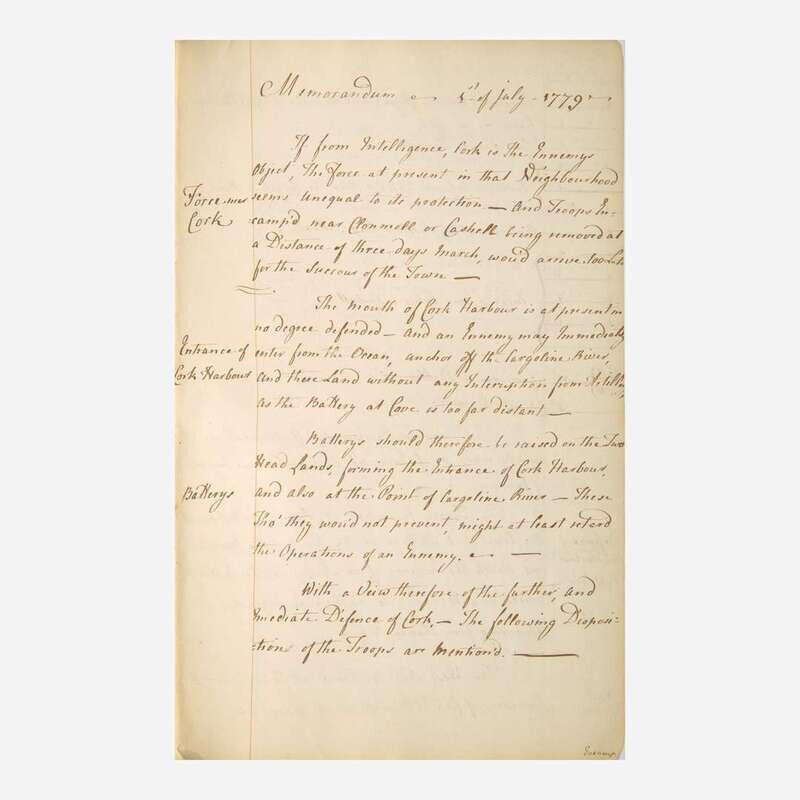 Memorandum 1st of july - 1779
If from Intelligence, Cork is The Ennemys
Object, The Force at present in that Neighbourhood
Force near
Cork
seems unequal to its protection — And Troops En-
camp'd near Clonmell or Cashell being removed at
a Distance of three days March, wou'd arrive too Late
for the Succour of the Town —
The Mouth of Cork Harbour is at present in
no degree defended — and an Ennemy may Immediately
Entrance of
Cork Harbour
enter from the Ocean, anchor off the Cargoline River,
and there Land without any Interuption from Artillery,
as the Battery at Cove is too far distant —
Batterys should therefore be raised on the Two
Head Lands, forming the Entrance of Cork Harbour,
Batterys
and also at the Point of Cargoline River — These
Tho' they wou'd not prevent, might at least retard
the Operations of an Ennemy. —
With a View therefore of the further, and
Imediate Defence of Cork, — The following Disposi:
:tions of the Troops are Mention'd. —